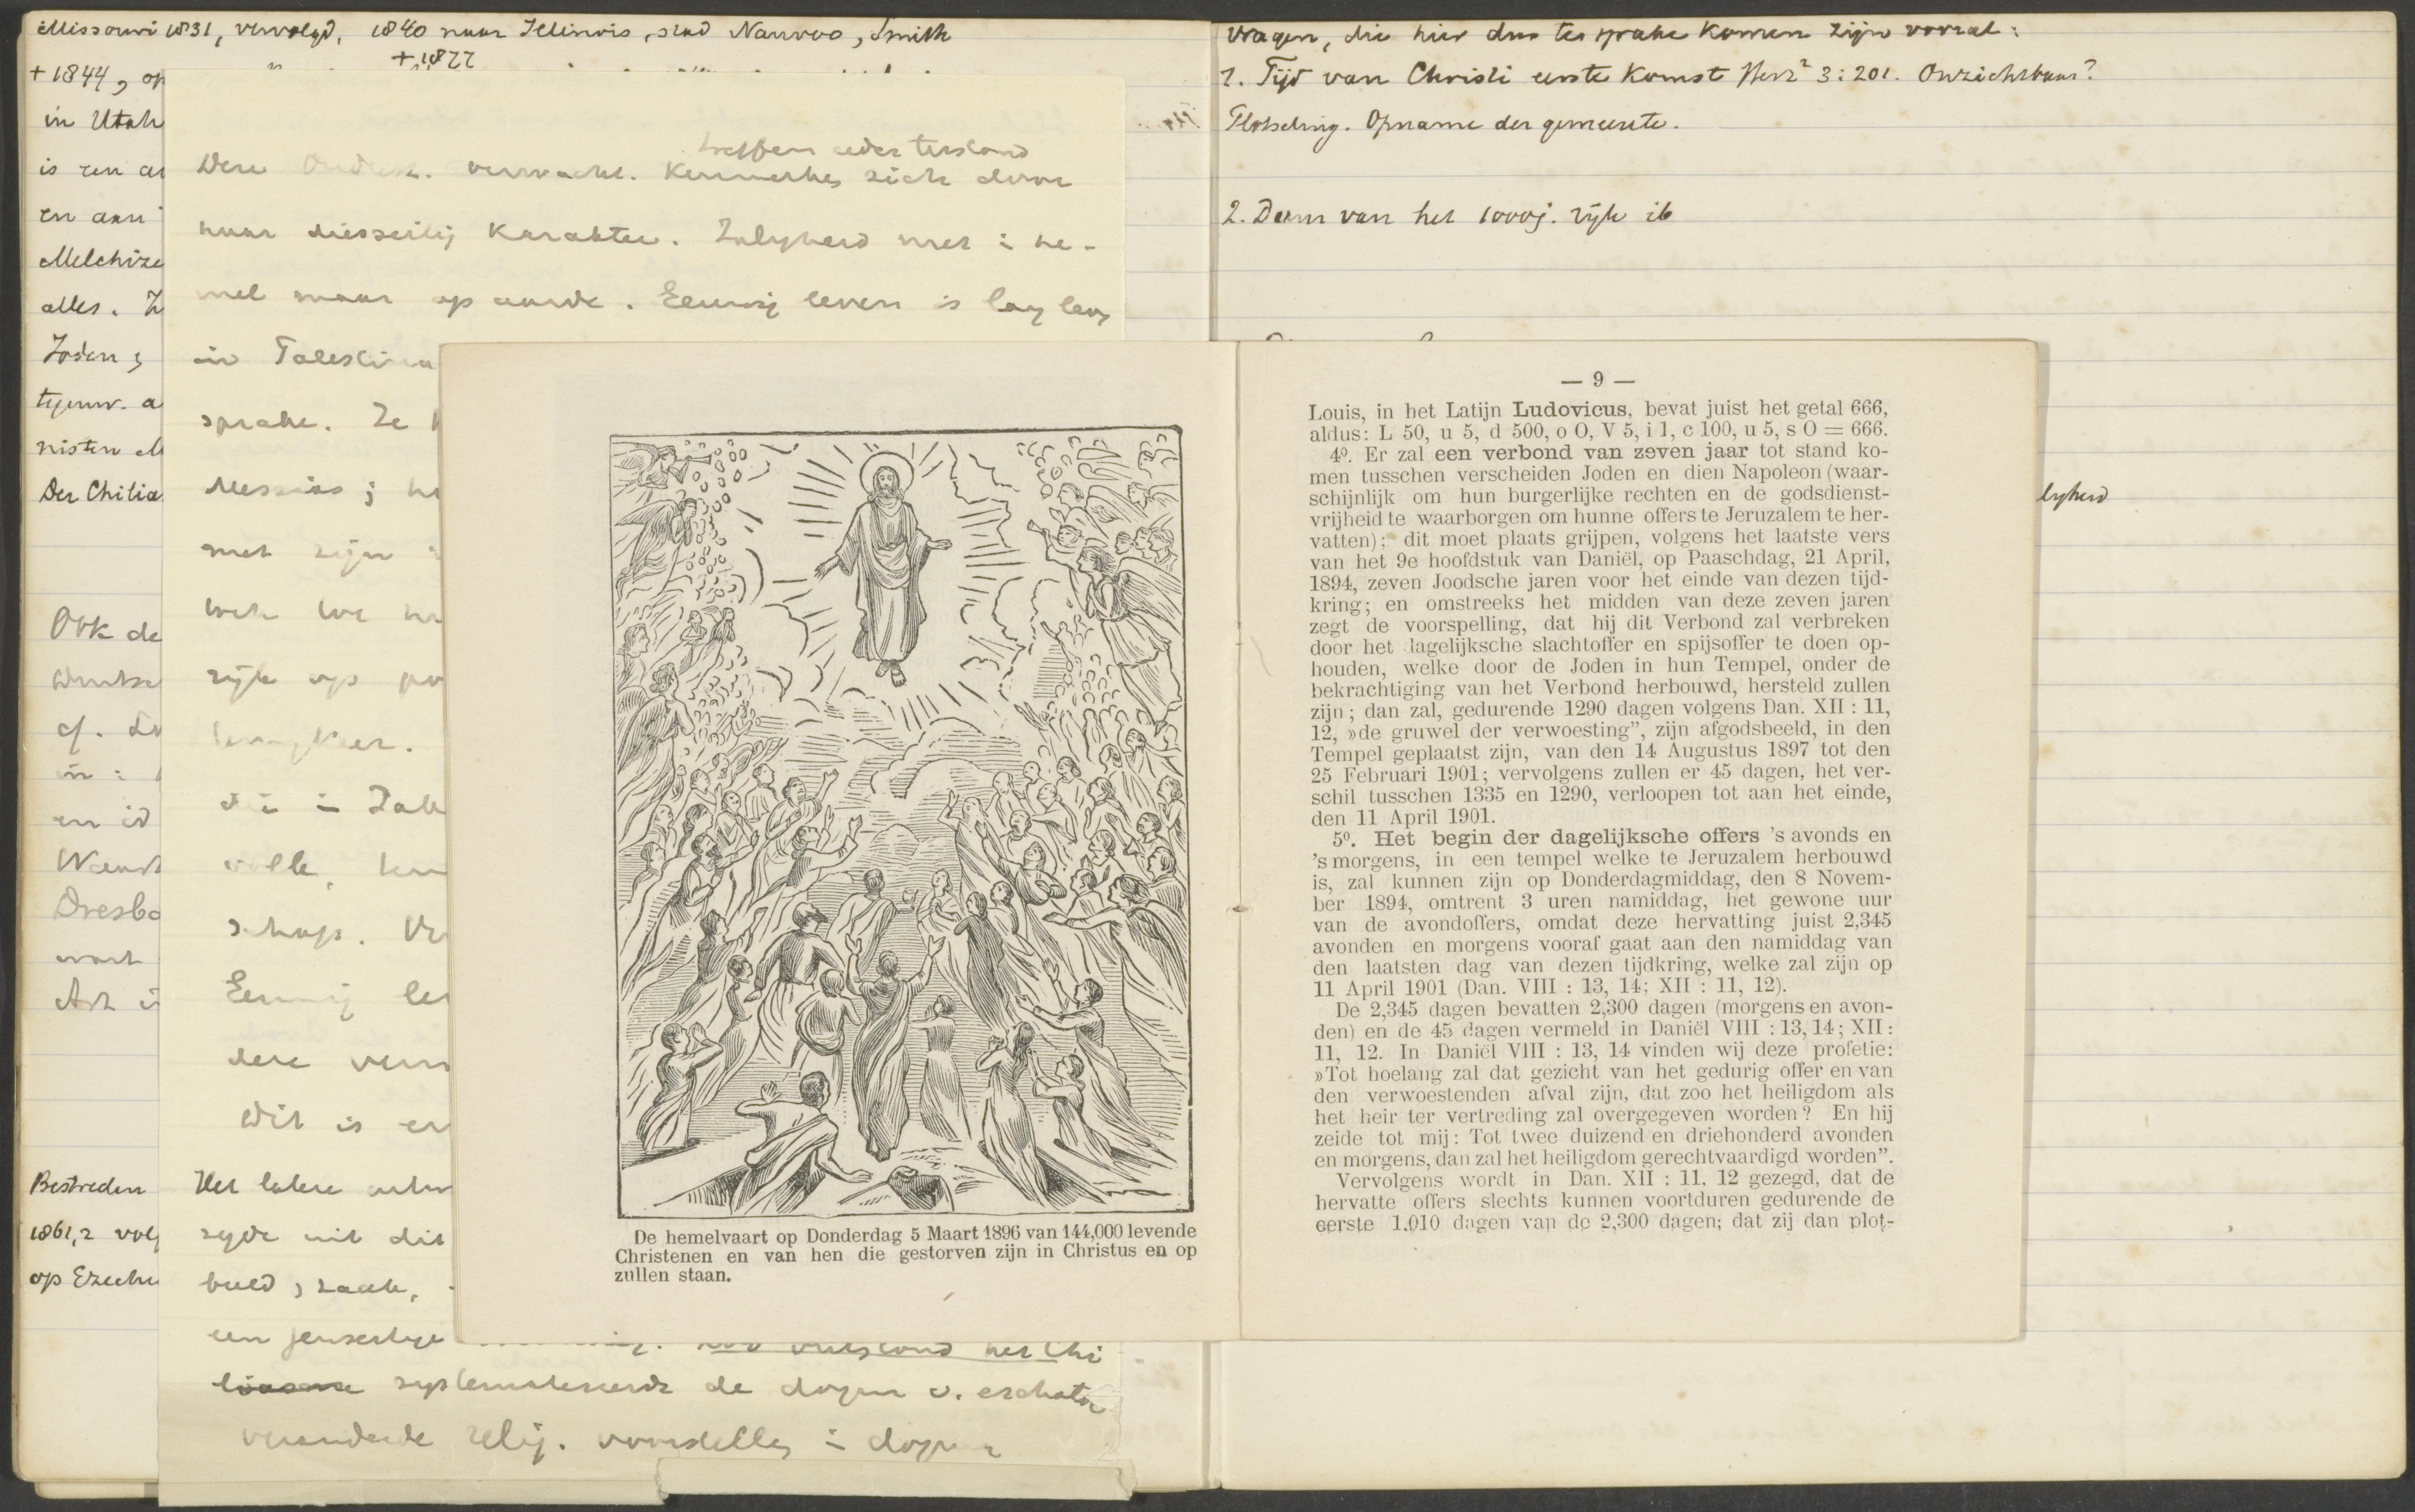 Missouri 1831, vervolgd, 1840 naar Illinois, stad Nauvoo, Smith
+ 1877
+ 1844, op
in Utah
is een
en aan
Melchize
alles. Z
Joden;
tegenw. a
nisten M
Der Chilia
Ook de
cf.
en id
Dresbo
Art
Bestreden
1861, 2 vol
op Ezechi
treffen
Dere verwacht. Kenmerkt zich door
naar diesseitig karakter. Zaligheid niet i he-
mel maar op aarde. Eeuwig leven is lang leven
in Palestina
sprake. Ze
Messias;
met zijn
rijk op
volle,
schap.
Eeuwig le
dere verw
Dit is
Het latere
zijde uit dit
beeld, zaak,
een jenseitige
ontstond het Chi
systematiseerde de dogm v. eschato
veranderde relig. voorstelling i dogma
vragen, die hier dus ter sprake komen zijn vooral:
1. Tijd van Christi eerste komst Herz² 3:201. Onzichtbaar?
Plotseling. Opname der gemeente.
2. Duur van het 1000j. rijk ib
lijkheid
De hemelvaart op Donderdag 5 Maart 1896 van 144,000 levende
Christenen en van hen die gestorven zijn in Christus en op
zullen staan.
— 9 —
Louis, in het Latijn Ludovicus, bevat juist het getal 666,
aldus: L 50, u 5, d 500, o O, V 5, i 1, c 100, u 5, s O = 666.
4º. Er zal een verbond van zeven jaar tot stand ko-
men tusschen verscheiden Joden en dien Napoleon (waar-
schijnlijk om hun burgerlijke rechten en de godsdienst-
vrijheid te waarborgen om hunne offers te Jeruzalem te her-
vatten); dit moet plaats grijpen, volgens het laatste vers
van het 9e hoofdstuk van Daniël, op Paaschdag, 21 April,
1894, zeven Joodsche jaren voor het einde van dezen tijd-
kring; en omstreeks het midden van deze zeven jaren
zegt de voorspelling, dat hij dit Verbond zal verbreken
door het dagelijksche slachtoffer en spijsoffer te doen op-
houden, welke door de Joden in hun Tempel, onder de
bekrachtiging van het Verbond herbouwd, hersteld zullen
zijn; dan zal, gedurende 1290 dagen volgens Dan. XII : 11,
12, »de gruwel der verwoesting”, zijn afgodsbeeld, in den
Tempel geplaatst zijn, van den 14 Augustus 1897 tot den
25 Februari 1901; vervolgens zullen er 45 dagen, het ver-
schil tusschen 1335 en 1290, verloopen tot aan het einde,
den 11 April 1901.
5º. Het begin der dagelijksche offers 's avonds en
's morgens, in een tempel welke te Jeruzalem herbouwd
is, zal kunnen zijn op Donderdagmiddag, den 8 Novem-
ber 1894, omtrent 3 uren namiddag, het gewone uur
van de avondoffers, omdat deze hervatting juist 2,345
avonden en morgens vooraf gaat aan den namiddag van
den laatsten dag van dezen tijdkring, welke zal zijn op
11 April 1901 (Dan. VIII : 13, 14; XII : 11, 12).
De 2,345 dagen bevatten 2,300 dagen (morgens en avon-
den) en de 45 dagen vermeld in Daniël VIII : 13, 14; XII :
11, 12. In Daniël VIII : 13, 14 vinden wij deze profetie:
»Tot hoelang zal dat gezicht van het gedurig offer en van
den verwoestenden afval zijn, dat zoo het heiligdom als
het heir ter vertreding zal overgegeven worden? En hij
zeide tot mij: Tot twee duizend en driehonderd avonden
en morgens, dan zal het heiligdom gerechtvaardigd worden”.
Vervolgens wordt in Dan. XII : 11, 12 gezegd, dat de
hervatte offers slechts kunnen voortduren gedurende de
eerste 1,010 dagen van de 2,300 dagen; dat zij dan plot-